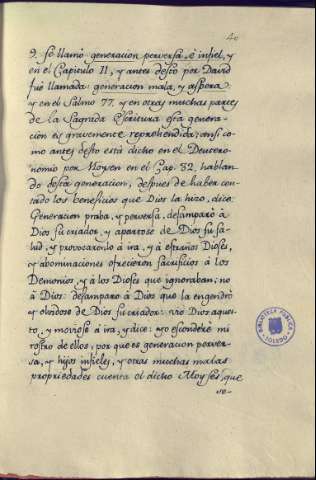 40
9. so llamò generacion perversa, è infiel, y
en el Capitulo 11, y antes desto por David
fuè llamada generacion mala, y aspera
y en el Salmo 77, y en otras muchas partes
de la Sagrada Escritura esta genera-
cion es gravemente reprehendida: ansi co-
mo antes desto està dicho en el Deutero-
nomio por Moysen en el Cap. 32, hablan-
do desta generacion, despues de haber con-
tado los beneficios que Dios la hizo, dice:
Generacion praba, y perversa, desamparò à
Dios su criador, y apartose de Dios su sa-
lud, y provocaronlo à ira, y à estraños Dioses,
y abominaciones ofrecieron sacrificios à los
Demonios, y à los Dioses que ignoraban; no
à Dios: desamparo à Dios que la engendrò
y olvidose de Dios su criador: viò Dios aques-
to, y moviose à ira, y dice: yo esconderè mi
rostro de ellos, por que es generacion perver-
sa, y hijos infieles, y otras muchas malas
propriedades cuenta el dicho Moyses, que
se-
BIBLIOTECA PUBLICA
TOLEDO